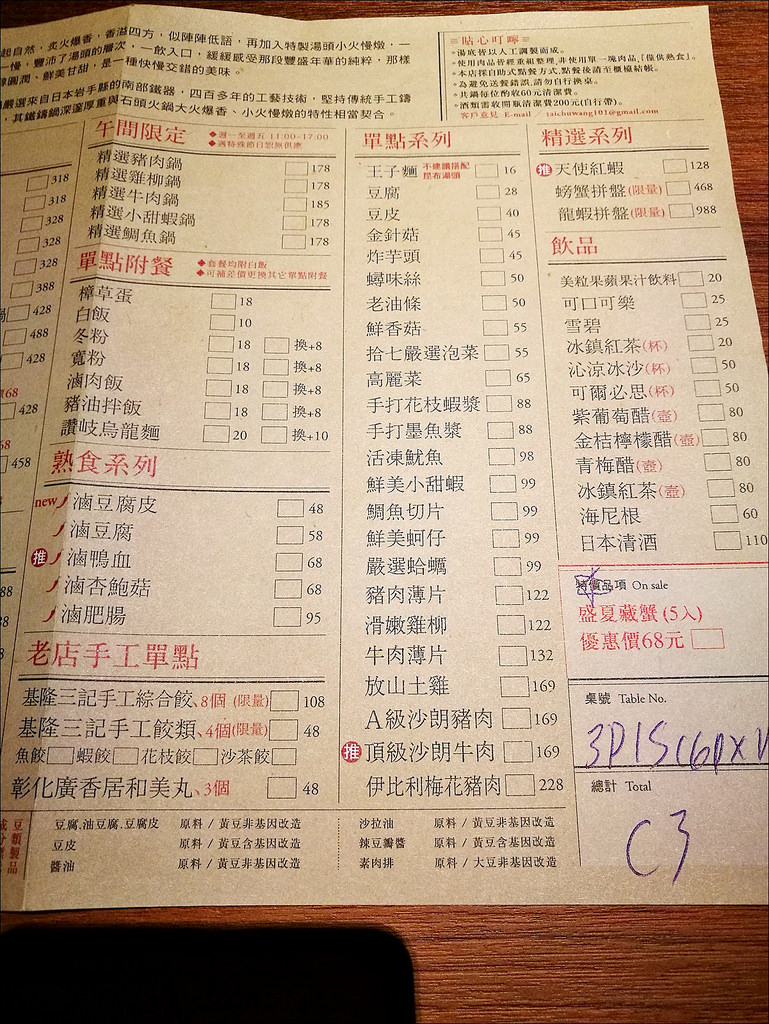 起自然，炙火慢香，香溢四方，似陣陣低語，再加入特製湯頭小火慢燉，一
一慢，豐沛了湯頭的層次，一飲入口，緩緩感受那段豐盛年華的純粹，那樣
圓潤、鮮美甘甜，是一種快慢交錯的美味。
嚴選來自日本岩手縣的南部鐵器，四百多年的工藝技術，堅持傳統手工鑄
，其鐵鑄鍋深邃厚重與石頭火鍋大火爆香、小火慢燉的特性相當契合。
貼心叮嚀
湯底皆以人工調製而成。
使用肉品皆經重組整理，非使用單一塊肉品，「僅供熟食」。
本店採自助式點餐方式，點餐後請至櫃檯結帳。
為避免送餐錯誤，請勿自行換桌。
共鍋每位酌收60元清潔費。
酒類需收開瓶清潔費200元(自行帶)。
客戶意見 E-mail / taichuwang101@gmail.com
318
318
328
328
328
388
鍋 428
488
428
價68
428
68
458
午間限定
◆週一至週五 11:00-17:00
◆遇特殊節日恕無供應
精選豬肉鍋 178
精選雞柳鍋 178
精選牛肉鍋 185
精選小甜蝦鍋 178
精選鯛魚鍋 178
單點附餐
◆套餐均附白飯
◆可補差價更換其它單點附餐
樟草蛋 18
白飯 10
冬粉 18 換+8
寬粉 18 換+8
滷肉飯 18 換+8
豬油拌飯 18 換+8
讚岐烏龍麵 20 換+10
熟食系列
new 滷豆腐皮 48
滷豆腐 58
推 滷鴨血 68
滷杏鮑菇 68
滷肥腸 95
老店手工單點
基隆三記手工綜合餃、8個 (限量) 108
基隆三記手工餃類、4個(限量) 48
魚餃 蝦餃 花枝餃 沙茶餃
彰化廣香居和美丸、3個 48
單點系列
王子麵 不建議搭配昆布湯頭 16
豆腐 28
豆皮 40
金針菇 45
炸芋頭 45
蟳味絲 50
老油條 50
鮮香菇 55
拾七嚴選泡菜 55
高麗菜 65
手打花枝蝦漿 88
手打墨魚漿 88
活凍魷魚 98
鮮美小甜蝦 99
鯛魚切片 99
鮮美蚵仔 99
嚴選蛤蠣 99
豬肉薄片 122
滑嫩雞柳 122
牛肉薄片 132
放山土雞 169
A級沙朗豬肉 169
推 頂級沙朗牛肉 169
伊比利梅花豬肉 228
精選系列
推 天使紅蝦 128
螃蟹拼盤(限量) 468
龍蝦拼盤(限量) 988
飲品
美粒果蘋果汁飲料 20
可口可樂 25
雪碧 25
冰鎮紅茶(杯) 20
沁涼冰沙(杯) 50
可爾必思(杯) 50
紫葡萄醋(壺) 80
金桔檸檬醋(壺) 80
青梅醋(壺) 80
冰鎮紅茶(壺) 80
海尼根 60
日本清酒 110
特價品項 On sale
盛夏藏蟹 (5入)
優惠價68元
桌號 Table No.
總計 Total
C3
豆類製品
成分
豆腐.油豆腐.豆腐皮 原料 / 黃豆非基因改造
豆皮 原料 / 黃豆含基因改造
醬油 原料 / 黃豆非基因改造
沙拉油 原料 / 黃豆非基因改造
辣豆瓣醬 原料 / 黃豆含基因改造
素肉排 原料 / 大豆非基因改造